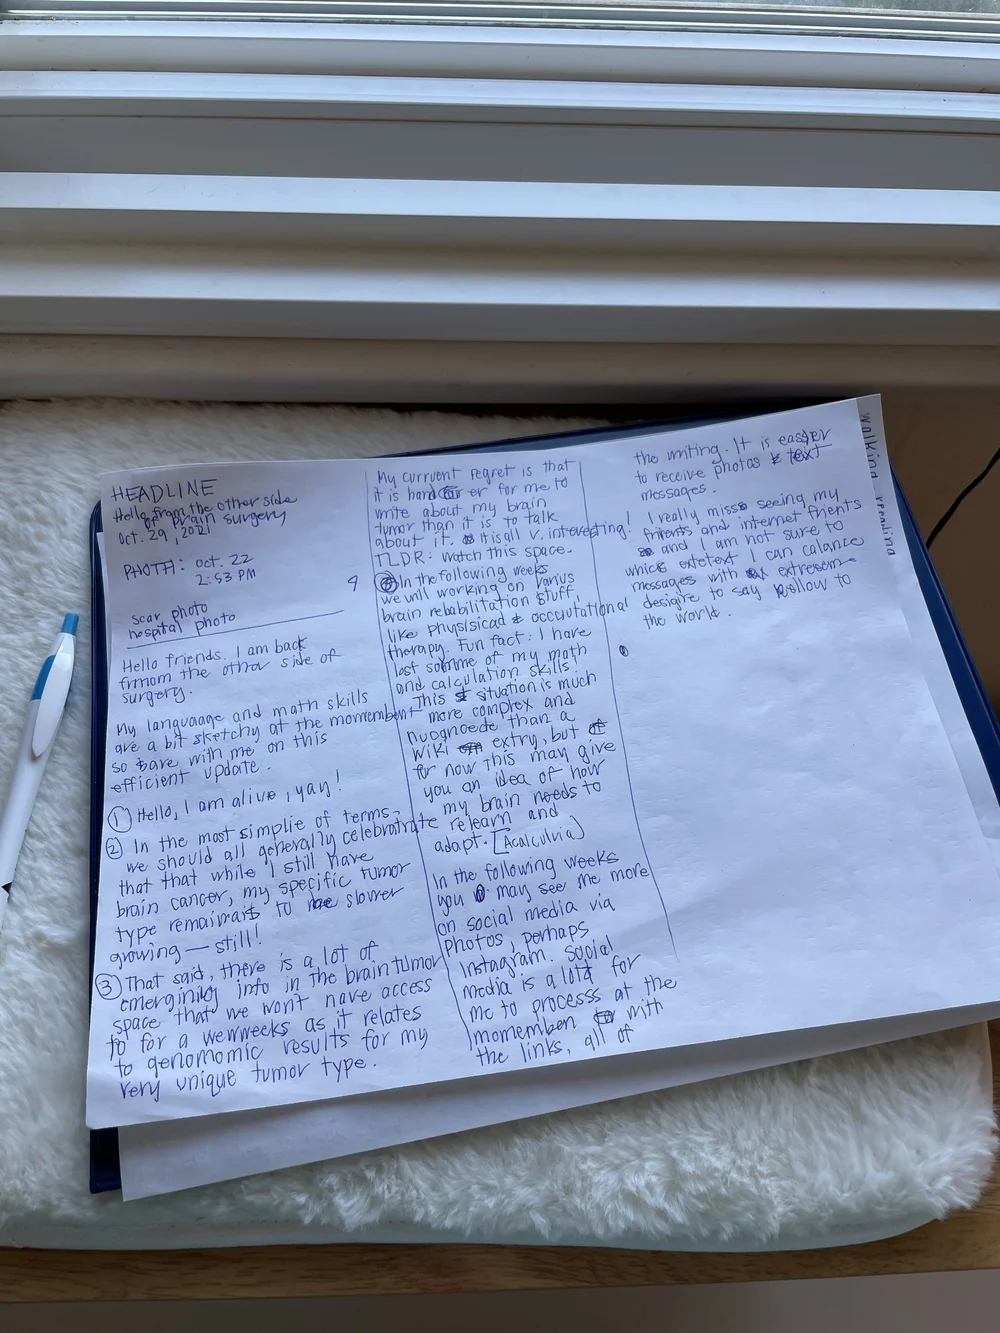 HEADLINE
Hello from the other side
of brain surgery
Oct. 29, 2021
PHOTH: oct. 22
2:53 PM
scar photo
hospital photo
Hello friends. I am back
frmom the other side of
surgery.
My languaage and math skills
are a bit sketchy at the momembent
so bare with me on this
efficient update.
① Hello, I am alive, yay!
② In the most simplie of terms,
we should all generally celebratrate
that that while I still have
brain cancer, my specific tumor
type remains to slower
growing — still!
③ That said, there is a lot of
emerginig info in the brain tumor
space that we won't have access
to for a wewweeks as it relates
to genomomic results for my
very unique tumor type.
My curruent regret is that
it is hard er for me to
write about my brain
tumor than it is to talk
about it. It is all v. interesting!
TLDR: Watch this space.
4 In the following weeks
we will working on varius
brain rebabilitation stuff,
like physisical & occutational
therapy. Fun fact: I have
lost somme of my math
and calculation skills!
This situation is much
more complex and
nuognoede than a
Wiki extry, but
for now this may give
you an idea of how
my brain needs to
relearn and
adapt. [Acalculvia]
In the following weeks
you may see me more
on social media via
photos, perhaps
Instagram. Social
media is a lott for
me to processs at the
momemben with
the links, all of
the writing. It is easier
to receive photos & text
messages.
I really miss seeing my
frients and internet frients
and I am not sure to
whics extetext I can calance
messages with extresem
desigire to say hollow to
the world.
walking reading